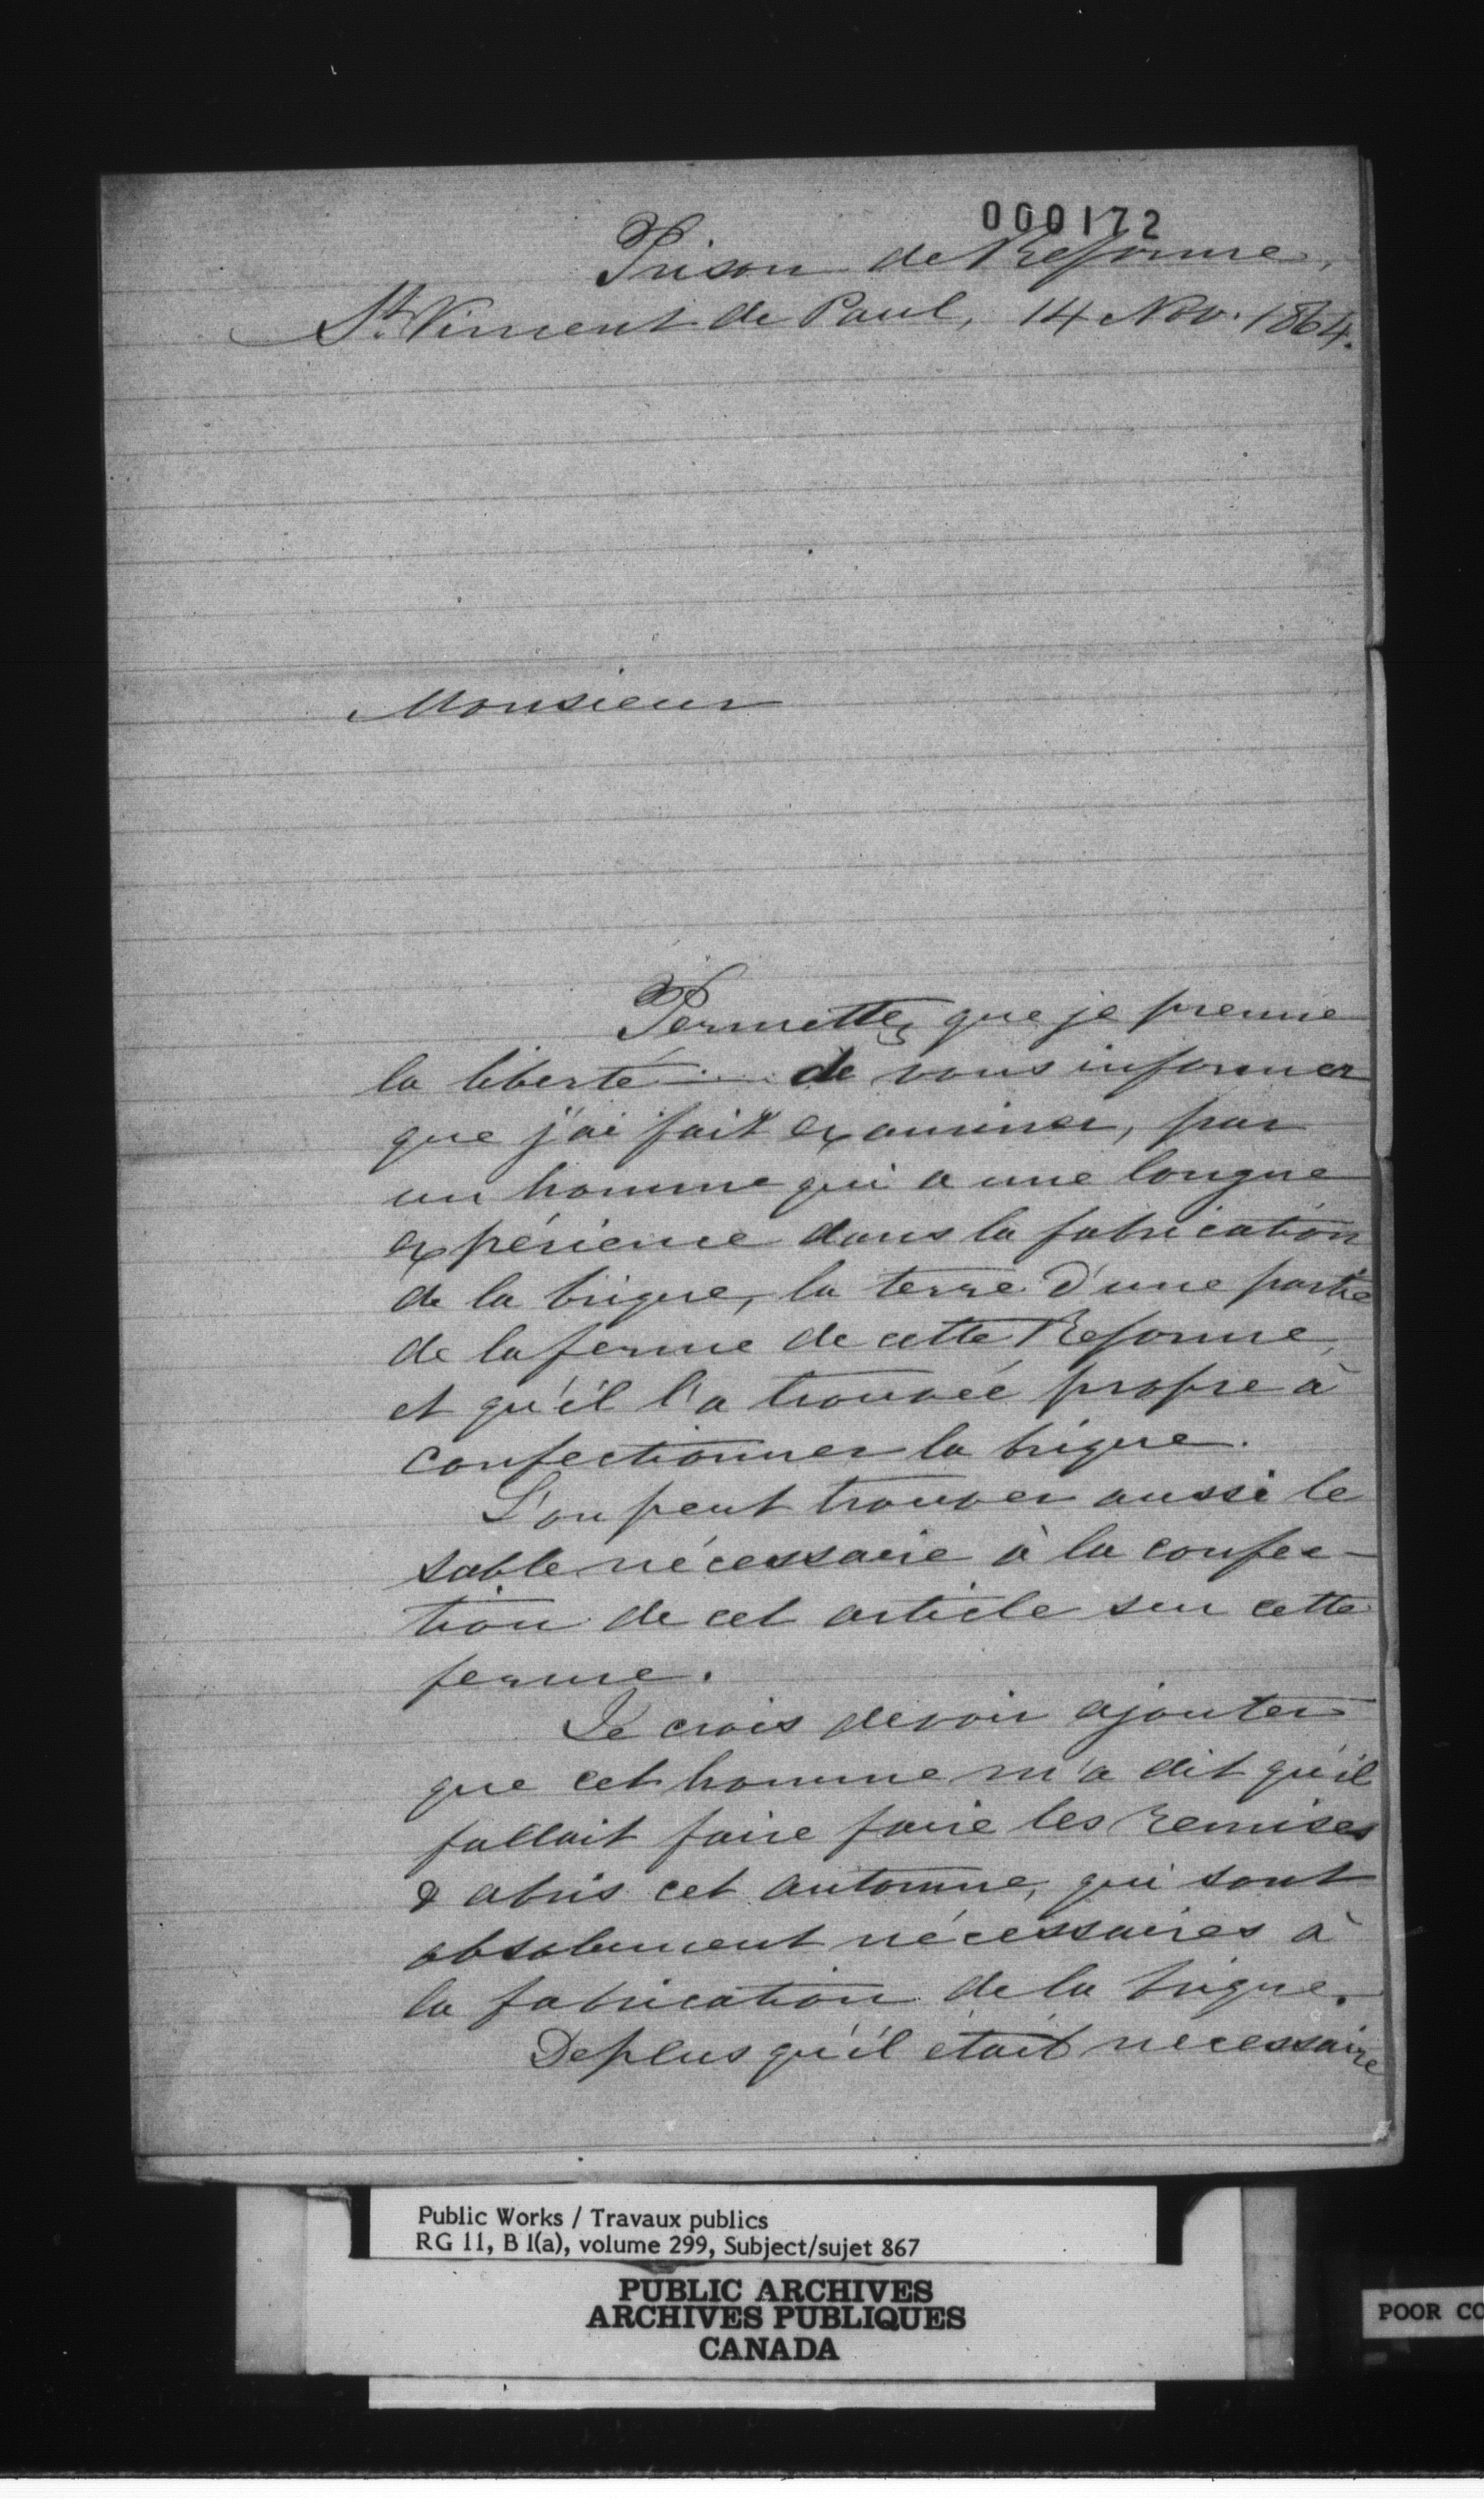 000172
Prison de Reforme,
St. Vincent de Paul, 14 Nov. 1864.
Monsieur
Permettez que je prenne
la liberté de vous informer
que j'ai fait examiner, par
un homme qui a une longue
expérience dans la fabrication
de la brique, la terre d'une partie
de la ferme de cette Reforme,
et qu'il l'a trouvée propre à
confectionner la brique.
L'on peut trouver aussi le
sable nécessaire à la confec-
tion de cet article sur cette
ferme.
Je crois devoir ajouter
que cet homme m'a dit qu'il
fallait faire faire les remises
& abris cet automne, qui sont
absolument nécessaires à
la fabrication de la brique.
De plus qu'il était necessaire
Public Works / Travaux publics
RG 11, B 1(a), volume 299, Subject/sujet 867
PUBLIC ARCHIVES
ARCHIVES PUBLIQUES
CANADA
POOR CO